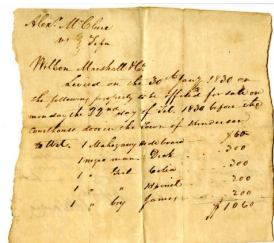 Alexr. McClure
vs } Fifa
Wilson Marshall & Co
Levied on the 30th Jany 1830 on
the following property to be offered for sale on
monday the 22nd day of Feb. 1830 before the
courthouse door in the Town of Henderson
to wit. 1 Mahogany sideboard $60
1 negro man Dick 300
1 " Girl Celia 300
1 " " Harriet 200
1 " boy James 200
$1060